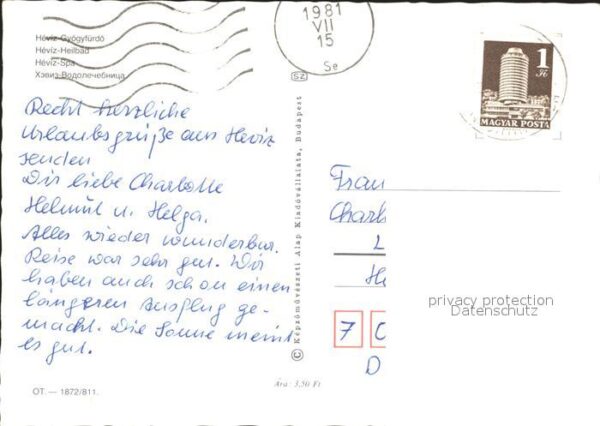 Hévíz-Gyógyfürdő
Hévíz-Heilbad
Héviz-Spa
Хэвиз-Водолечебница
1981
VII
15
Se
SZ
1 Ft
MAGYAR POSTA
Recht herzliche
Urlaubsgrüße aus Heviz
senden
Dir liebe Charlotte
Helmut u. Helga.
Alles wieder wunderbar.
Reise war sehr gut. Wir
haben auch schon einen
längeren Ausflug ge-
macht. Die Sonne meint
es gut.
© Képzőművészeti Alap Kiadóvállalata, Budapest
Frau
Charl
L
He
7
D
privacy protection
Datenschutz
Ára: 3,50 Ft
OT. — 1872/811.